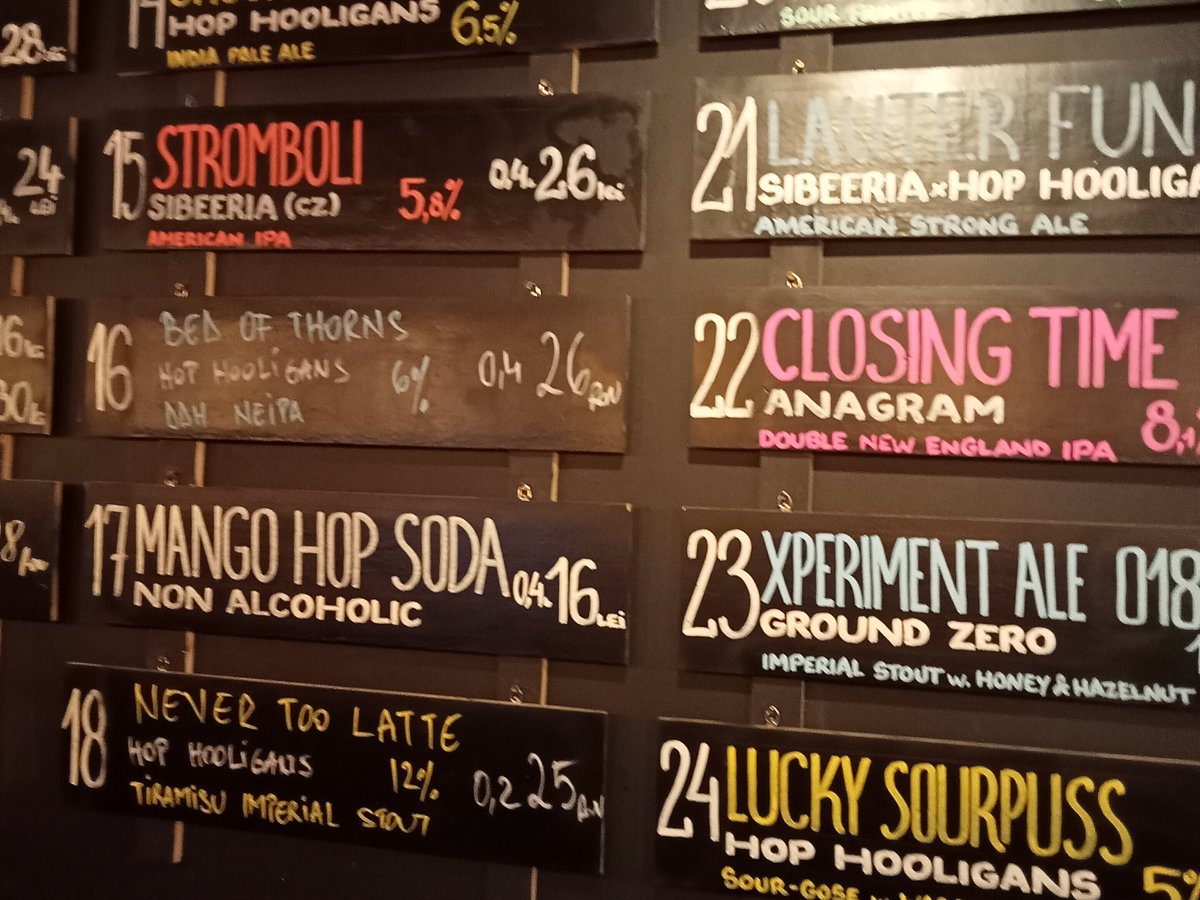 28 LEI
24
LEI
14
HOP HOOLIGANS 6.5%
INDIA PALE ALE
15 STROMBOLI
SIBEERIA (CZ) 5,8% 0,4L 26 lei
AMERICAN IPA
16 BED OF THORNS
HOP HOOLIGANS 6% 0,4 26 RON
DDH NEIPA
17 MANGO HOP SODA 0,4L 16 LEI
NON ALCOHOLIC
18 NEVER TOO LATTE
HOP HOOLIGANS 12% 0,2 25 RON
TIRAMISU IMPERIAL STOUT
SOUR
21 LAUTER FUN
SIBEERIA x HOP HOOLIGA
AMERICAN STRONG ALE
22 CLOSING TIME
ANAGRAM
DOUBLE NEW ENGLAND IPA 8,1
23 XPERIMENT ALE 018
GROUND ZERO
IMPERIAL STOUT w. HONEY & HAZELNUT
24 LUCKY SOURPUSS
HOP HOOLIGANS
SOUR-GOSE 5%